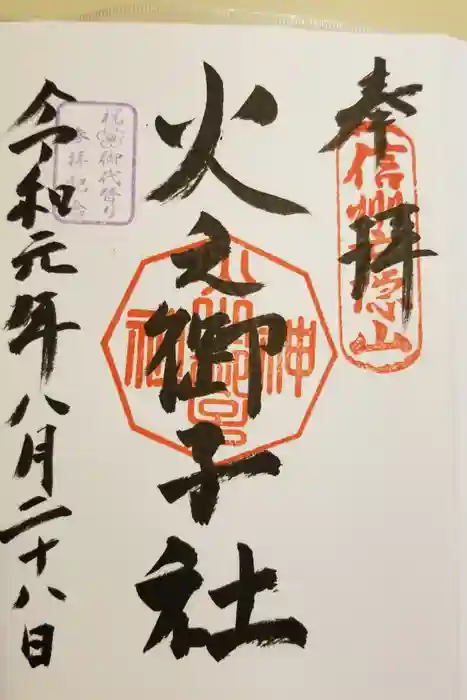 奉拝
信州戸隠山
火之御子社
令和元年八月二十八日
祝御代替り
参拝記念